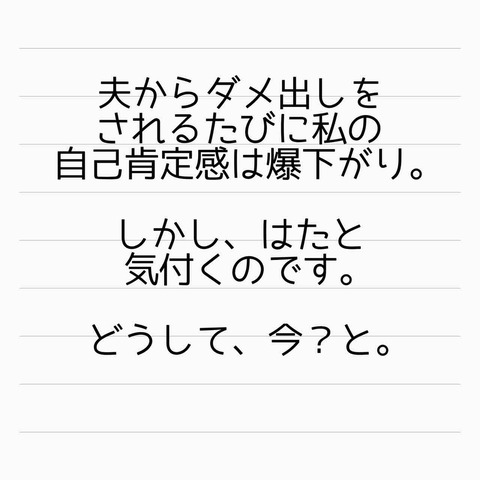 夫からダメ出しを
されるたびに私の
自己肯定感は爆下がり。
しかし、はたと
気付くのです。
どうして、今？と。